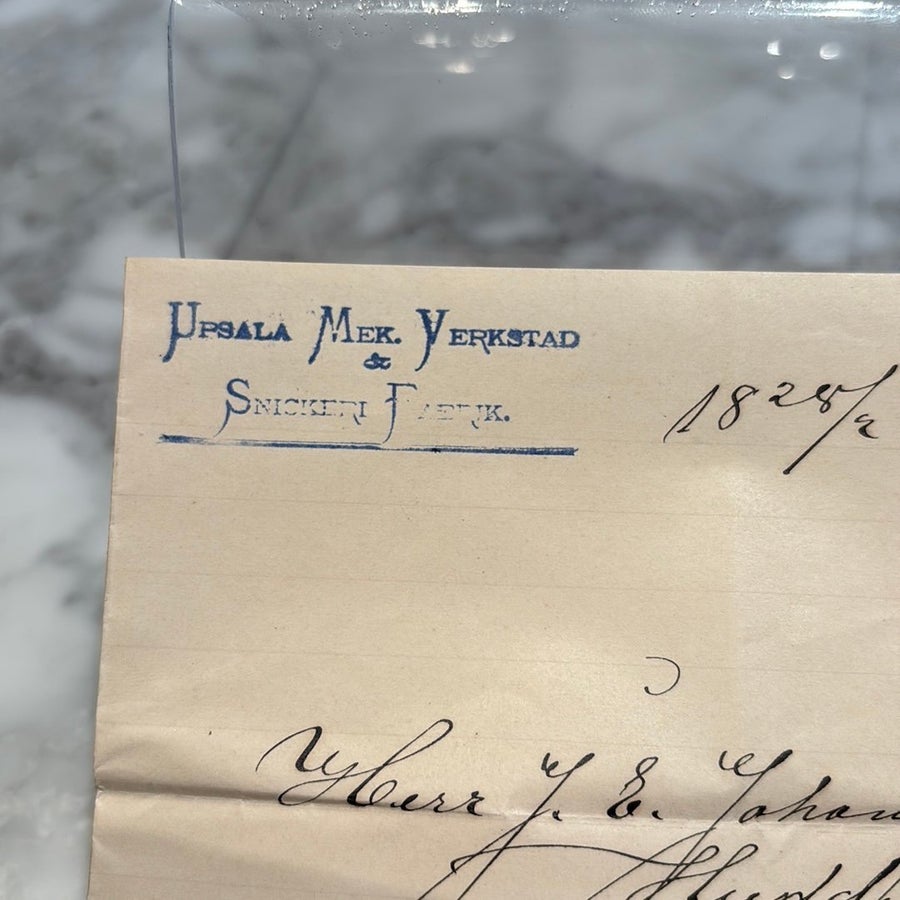 Upsala Mek. Verkstad
&
Snickeri Fabrik.
18 28/2
Herr J. E. Johan